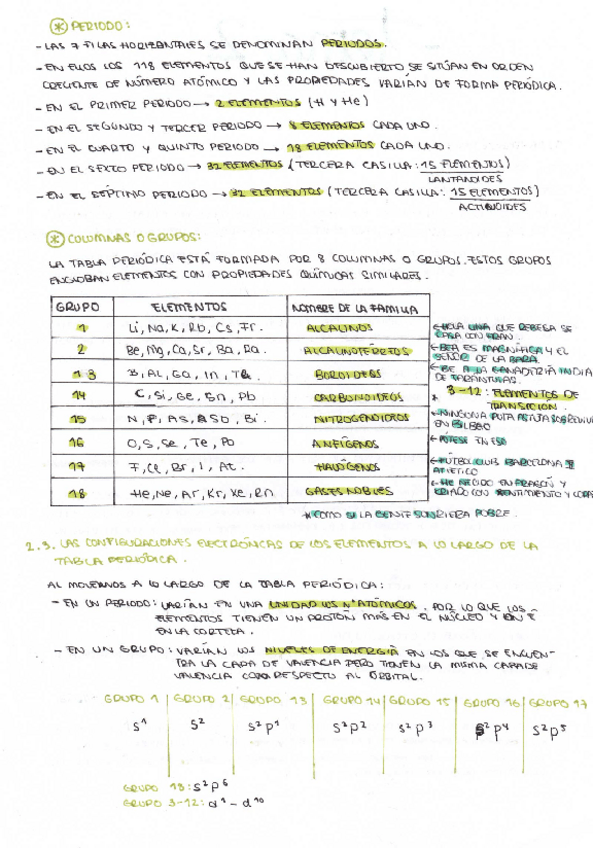 * PERIODO:
- LAS 7 FILAS HORIZONTALES SE DENOMINAN PERIODOS.
- EN ELLOS LOS 118 ELEMENTOS QUE SE HAN DESCUBIERTO SE SITÚAN EN ORDEN
CRECIENTE DE NÚMERO ATÓMICO Y LAS PROPIEDADES VARÍAN DE FORMA PERIÓDICA.
- EN EL PRIMER PERIODO → 2 ELEMENTOS (H y He)
- EN EL SEGUNDO Y TERCER PERIODO → 8 ELEMENTOS CADA UNO.
- EN EL CUARTO Y QUINTO PERIODO → 18 ELEMENTOS CADA UNO.
- EN EL SEXTO PERIODO → 32 ELEMENTOS (TERCERA CASILLA: 15 ELEMENTOS)
LANTANOIDES
- EN EL SÉPTIMO PERIODO → 32 ELEMENTOS (TERCERA CASILLA: 15 ELEMENTOS)
ACTINOIDES
* COLUMNAS O GRUPOS:
LA TABLA PERIÓDICA ESTÁ FORMADA POR 8 COLUMNAS O GRUPOS. ESTOS GRUPOS
ENGLOBAN ELEMENTOS CON PROPIEDADES QUÍMICAS SIMILARES.
GRUPO ELEMENTOS NOMBRE DE LA FAMILIA
1 Li, Na, K, Rb, Cs, Fr. ALCALINOS
← HOLA UNA QUE REBESA SE
CASA CON FRAN
2 Be, Mg, Ca, Sr, Ba, Ra. ALCALINOTÉRREOS
← BEA ES MAGNÍFICA Y EL
DE LA BARA
13 B, Al, Ga, In, Tl. BOROIDEOS
← BE A LA GANADERÍA INDIA
DE TARÁNTULAS.
14 C, Si, Ge, Sn, Pb CARBONOIDEOS
* 3-12: ELEMENTOS DE
TRANSICIÓN.
15 N, P, As, Sb, Bi. NITROGENOIDEOS
← NINGUNA PUTA ASTUTA SOBREVIVE
EN BILBAO
16 O, S, Se, Te, Po ANFÍGENOS
← PÓTESE EN ESO
17 F, Cl, Br, I, At. HALÓGENOS
← FÚTBOL CLUB BARCELONA
ATLÉTICO
18 He, Ne, Ar, Kr, Xe, Rn GASES NOBLES
← HE NACIDO EN ARAGÓN Y
CRIADO CON SENTIMIENTO Y
* COMO SI LA GENTE SONRIERA POBRE.
2.3. LAS CONFIGURACIONES ELECTRÓNICAS DE LOS ELEMENTOS A LO LARGO DE LA
TABLA PERIÓDICA.
AL MOVERNOS A LO LARGO DE LA TABLA PERIÓDICA:
- EN UN PERIODO: VARÍAN EN UNA UNIDAD LOS Nº ATÓMICOS, POR LO QUE LOS
ELEMENTOS TIENEN UN PROTÓN MÁS EN EL NÚCLEO Y UN ē
EN LA CORTEZA.
- EN UN GRUPO: VARÍAN LOS NIVELES DE ENERGÍA EN LOS QUE SE ENCUEN-
TRA LA CAPA DE VALENCIA PERO TIENEN LA MISMA CAPA DE
VALENCIA CON RESPECTO AL ORBITAL.
GRUPO 1 GRUPO 2 GRUPO 13 GRUPO 14 GRUPO 15 GRUPO 16 GRUPO 17
s¹ s² s²p¹ s²p² s²p³ s²p⁴ s²p⁵
GRUPO 18: s²p⁶
GRUPO 3-12: d¹ - d¹⁰